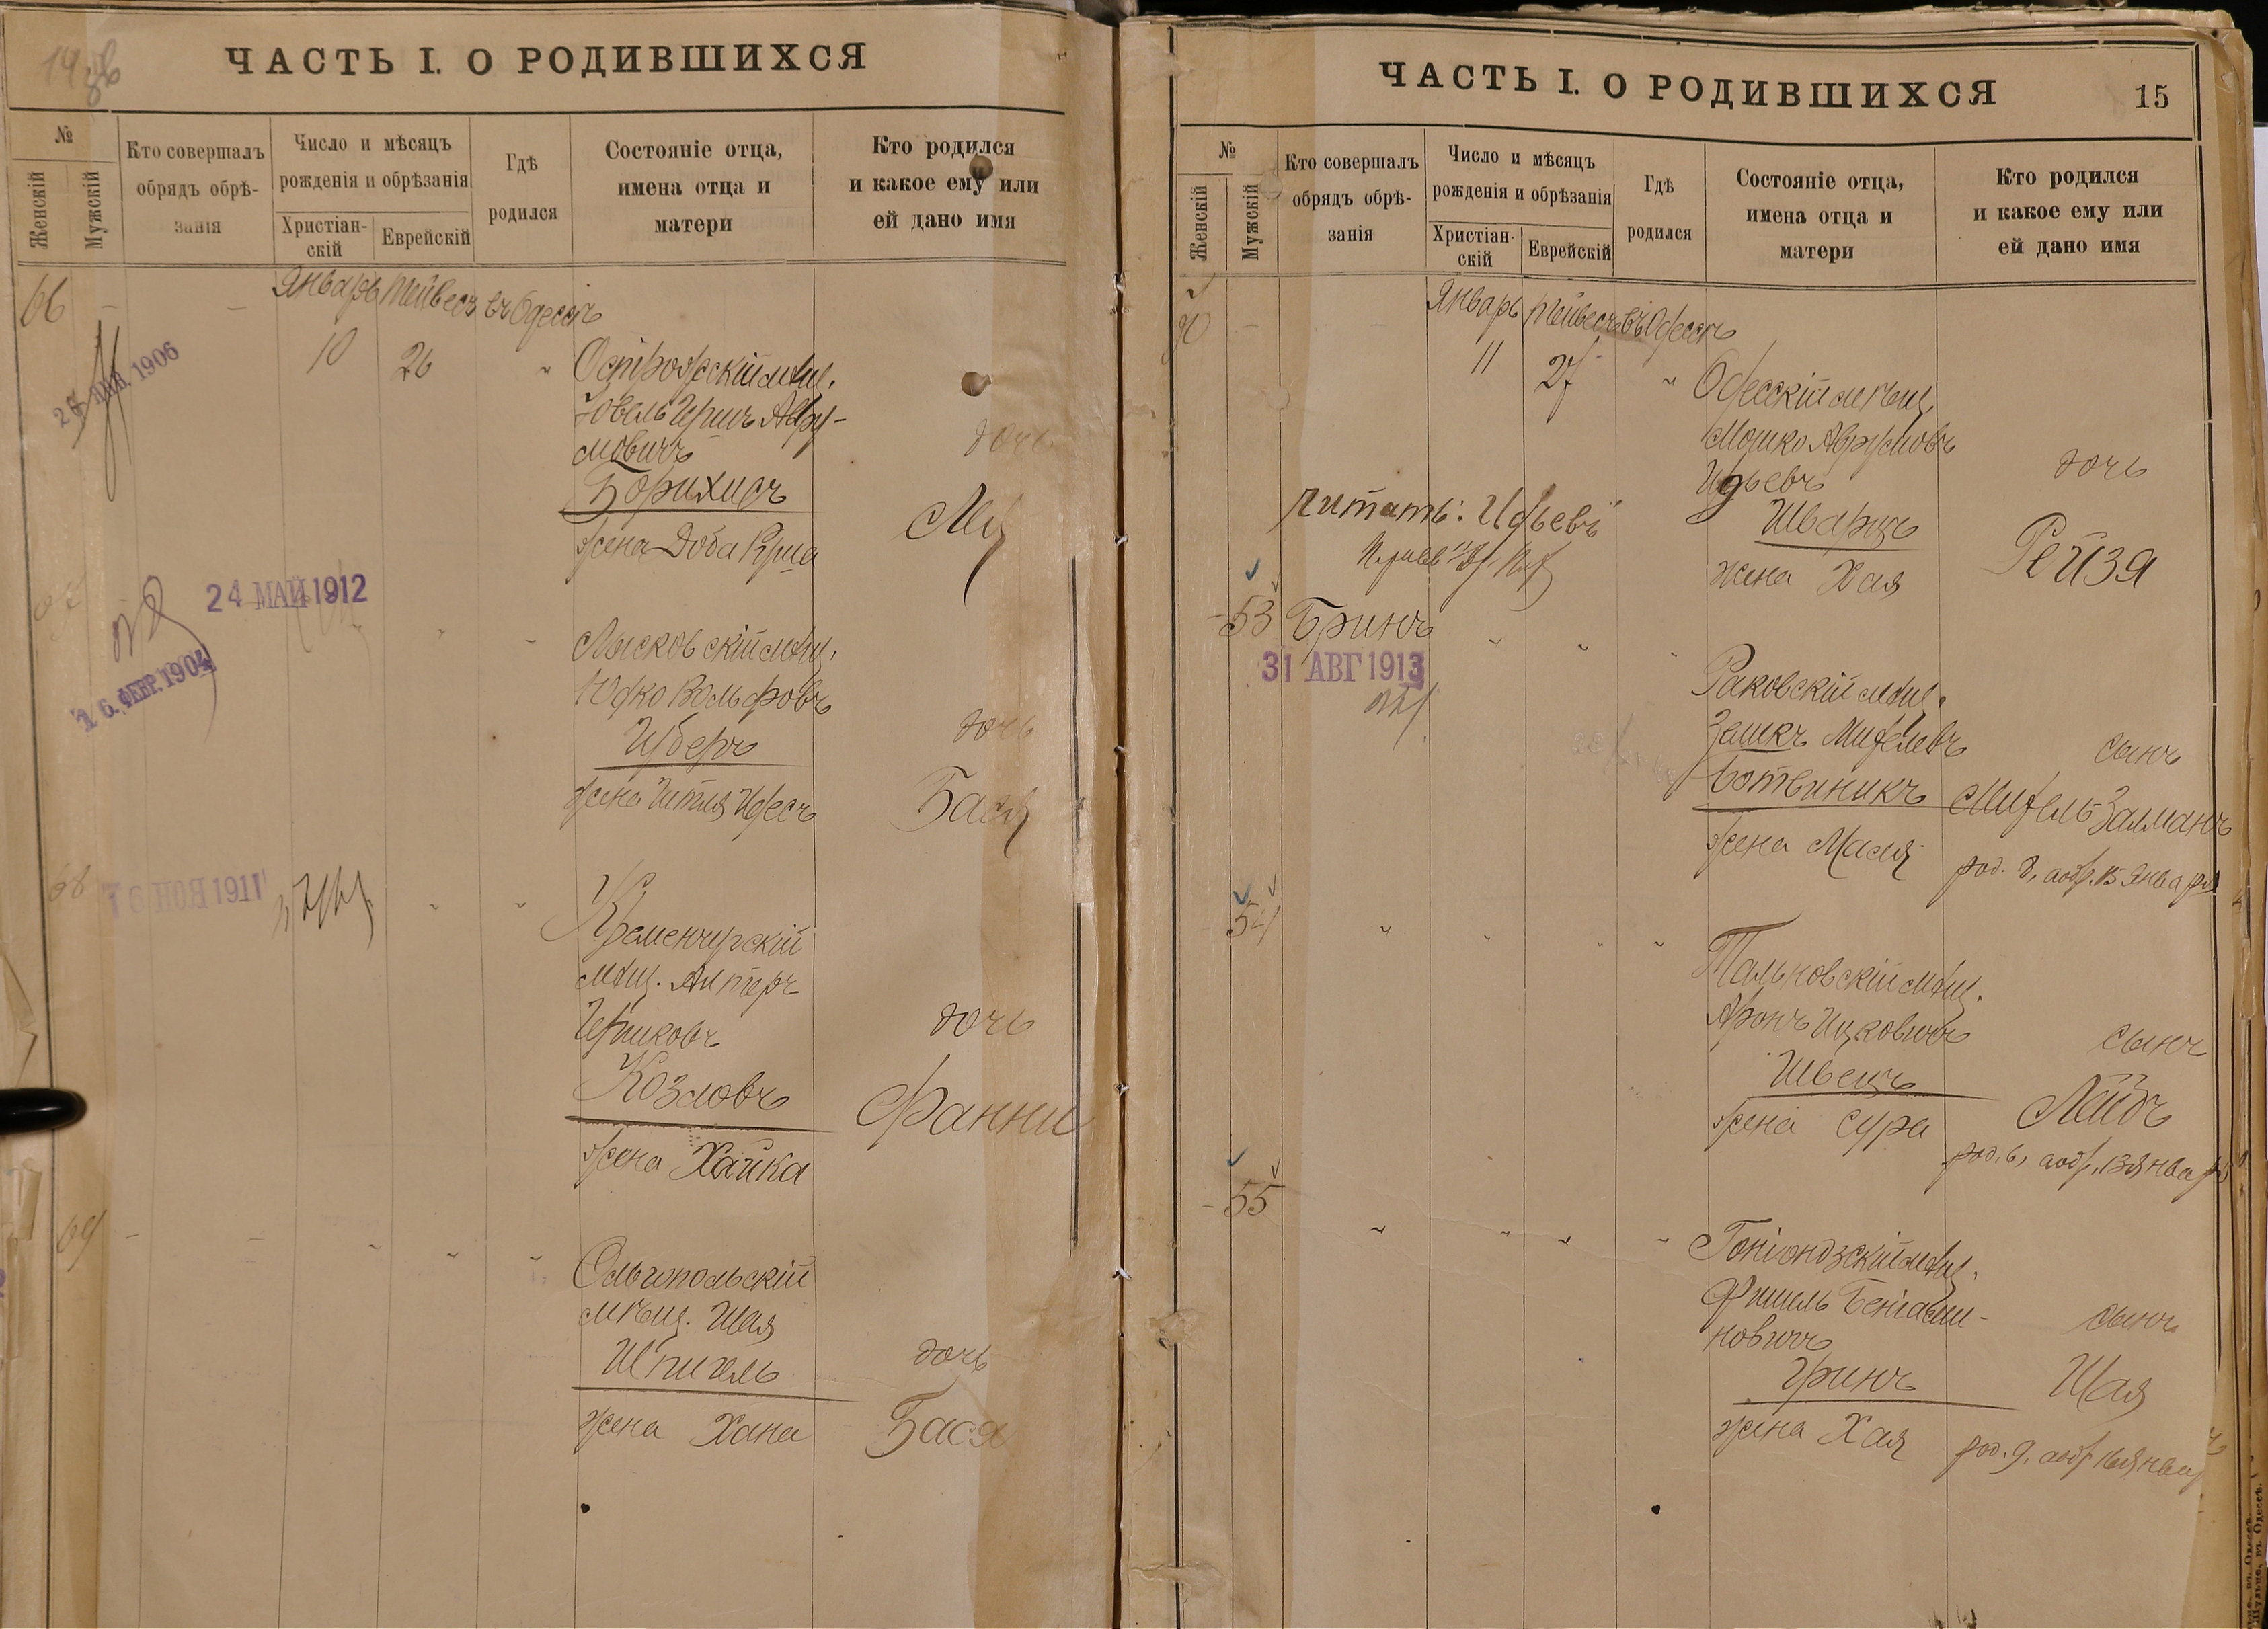 ЧАСТЬ I. О РОДИВШИХСЯ
№
Женскій
Мужскій
Кто совершалъ
обрядъ обрѣ-
занія
Число и мѣсяцъ
рожденія и обрѣзанія
Христіан-
скій
Еврейскій
Гдѣ
родился
Состояніе отца,
имена отца и
матери
Кто родился
и какое ему или
ей дано имя
66 - - Январь Тейвесъ въ Одессѣ
10 26 "
1906
мѣщ.
Іовель Гершъ Авру-
мовичъ
Борихисъ
дочь
жена Доба
24 МАЙ 1912
" -
Лысковскій мѣщ.
Юдко Вольфовъ
Губеръ
дочь
жена Гитля Идесъ
Бася
16 ФЕВР. 1904
68
16 НОЯ 1911
" "
Кременчугскій
мѣщ. Алтеръ
Гершковъ
Козловъ
дочь
Фанни
жена Хайка
69 - - " " "
Ольгопольскій
мѣщ. Шая
Шпигель
дочь
жена Хана
Бася
ЧАСТЬ I. О РОДИВШИХСЯ
15
№
Женскій
Мужскій
Кто совершалъ
обрядъ обрѣ-
занія
Число и мѣсяцъ
рожденія и обрѣзанія
Христіан-
скій
Еврейскій
Гдѣ
родился
Состояніе отца,
имена отца и
матери
Кто родился
и какое ему или
ей дано имя
70 - - Январь Тейвесъ въ Одессѣ
11 27 "
Одесскій мѣщ.
Мошко Аврумовъ
Идьевъ
дочь
Шварцъ
читать: Идьевъ
жена Хая
Рейзя
- 53 Гринъ " " "
31 АВГ 1913
Раковскій мѣщ.
Зашкъ Михелевъ
сынъ
Ботвиникъ
Михель-Залманъ
жена Мася
род. 8, а обр. 15 января
54 " " " "
Тальновскій мѣщ.
Аронъ Ицковичъ
сынъ
Швецъ
Лейбъ
жена Сура
род. 6, а обр. 13 января
- 55 " " " "
Гоніондзскій мѣщ.
Фишель Беніами-
новичъ
сынъ
Гринъ
Шая
жена Хая
род. 9, а обр. 16 январ